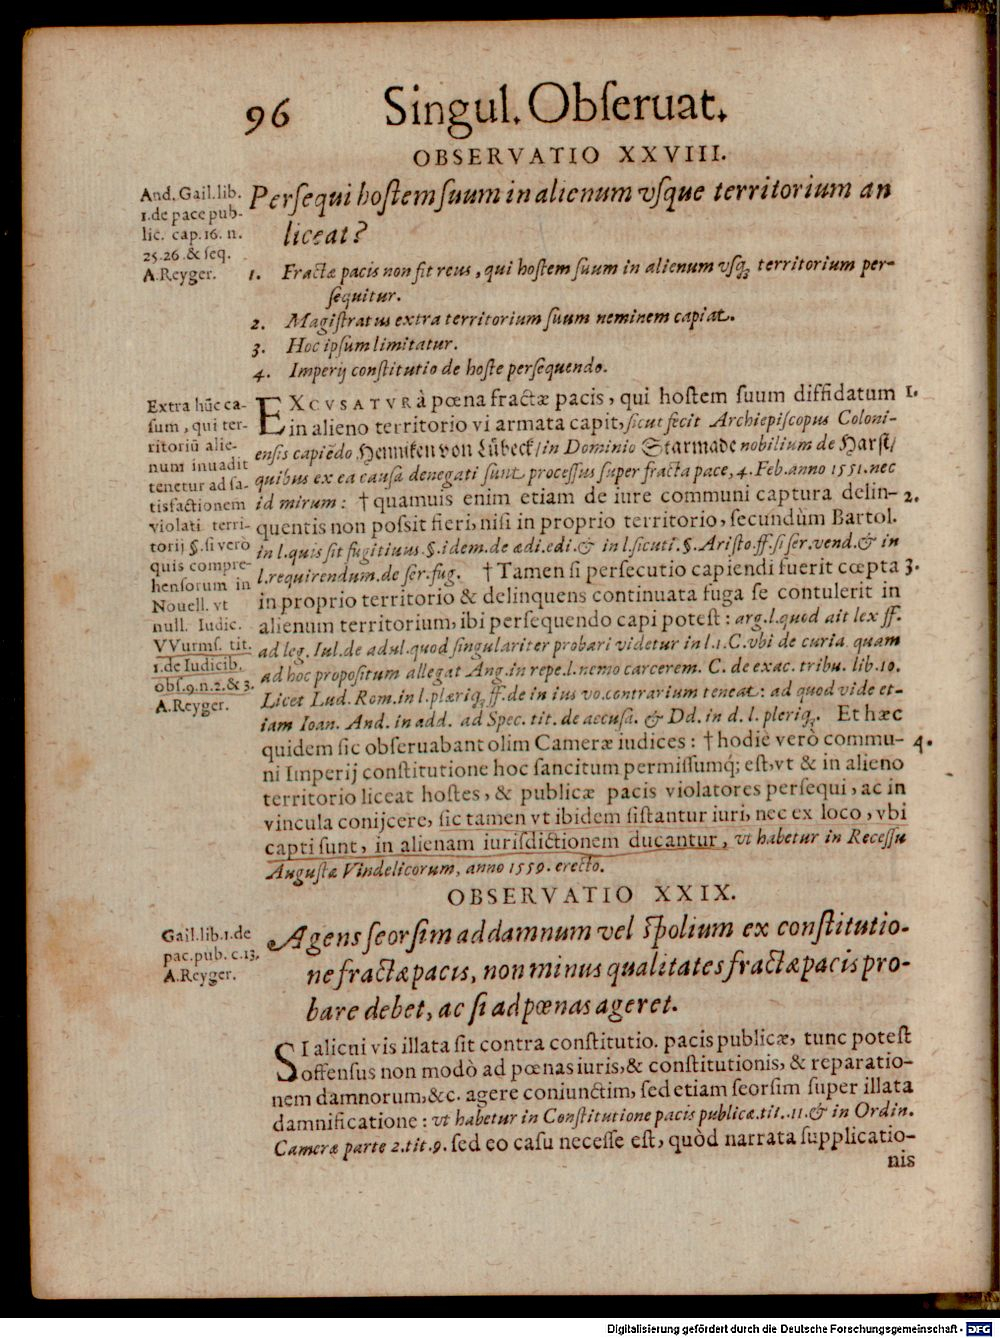 96 Singul. Obſeruat.
OBSERVATIO XXVIII.
And. Gail. lib.
1. de pace pub-
lic. cap. 16. n.
25. 26. & ſeq.
A. Reyger.
Perſequi hoſtem ſuum in alienum vſque territorium an
liceat?
1. Fractæ pacis non fit reus, qui hoſtem ſuum in alienum vſq; territorium per-
ſequitur.
2. Magiſtratus extra territorium ſuum neminem capiat.
3. Hoc ipſum limitatur.
4. Imperij conſtitutio de hoſte perſequendo.
Extra hũc ca-
ſum, qui ter-
ritoriũ alie-
num inuadit
tenetur ad ſa-
tisfactionem
violati terri-
torij §. ſi verò
quis compre-
henſorum in
Nouell. vt
null. Iudic.
VVurmſ. tit.
1. de Iudicib.
obſ. 9. n. 2. & 3.
A. Reyger.
EXCVSATVR à pœna fractæ pacis, qui hoſtem ſuum diffidatum 1.
in alieno territorio vi armata capit, ſicut fecit Archiepiſcopus Coloni-
enſis capiẽdo Henniken von Lübeck/ in Dominio Starmade nobilium de Harſt/
quibus ex ea cauſa denegati ſunt proceſſus ſuper fracta pace, 4. Feb. anno 1551. nec
id mirum: † quamuis enim etiam de iure communi captura delin- 2.
quentis non poſsit fieri, niſi in proprio territorio, ſecundùm Bartol.
in l. quis ſit fugitiuus. §. idem. de ædi. edi. & in l. ſicuti. §. Ariſto. ff. ſi ſer. vend. & in
l. requirendum. de ſer. fug. † Tamen ſi perſecutio capiendi fuerit cœpta 3.
in proprio territorio & delinquens continuata fuga ſe contulerit in
alienum territorium, ibi perſequendo capi poteſt: arg. l. quod ait lex ff.
ad leg. Iul. de adul. quod ſingulariter probari videtur in l. 1. C. vbi de curia quam
ad hoc propoſitum allegat Ang. in repe. l. nemo carcerem. C. de exac. tribu. lib. 10.
Licet Lud. Rom. in l. plæriq; ff. de in ius vo. contrarium teneat: ad quod vide et-
iam Ioan. And. in add. ad Spec. tit. de accuſa. & Dd. in d. l. pleriq;. Et hæc
quidem ſic obſeruabant olim Cameræ iudices: † hodiè verò commu- 4.
ni Imperij conſtitutione hoc ſancitum permiſſumq́; eſt, vt & in alieno
territorio liceat hoſtes, & publicæ pacis violatores perſequi, ac in
vincula conijcere, ſic tamen vt ibidem ſiſtantur iuri, nec ex loco, vbi
capti ſunt, in alienam iuriſdictionem ducantur, vt habetur in Receſſu
Auguſtæ Vindelicorum, anno 1559. erecto.
OBSERVATIO XXIX.
Gail. lib. 1. de
pac. pub. c. 13.
A. Reyger.
Agens ſeorſim ad damnum vel ſpolium ex conſtitutio-
ne fractæ pacis, non minus qualitates fractæ pacis pro-
bare debet, ac ſi ad pœnas ageret.
SI alicui vis illata ſit contra conſtitutio. pacis publicæ, tunc poteſt
offenſus non modò ad pœnas iuris, & conſtitutionis, & reparatio-
nem damnorum, &c. agere coniunctim, ſed etiam ſeorſim ſuper illata
damnificatione: vt habetur in Conſtitutione pacis publicæ. tit. 11. & in Ordin.
Cameræ parte 2. tit. 9. ſed eo caſu neceſſe eſt, quòd narrata ſupplicatio-
nis
Digitalisierung gefördert durch die Deutsche Forschungsgemeinschaft - DFG